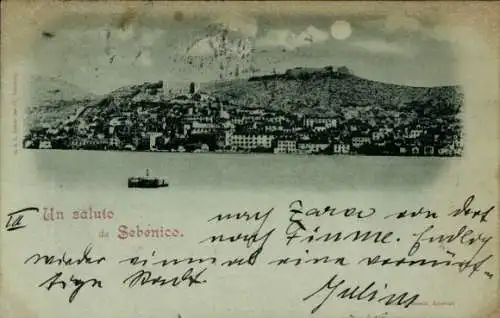 II
Un saluto
da Sebenico.
nach Zara von dort
nach Fiume. Endlich
wieder einmal eine vernünf-
tige Stadt.
Julius